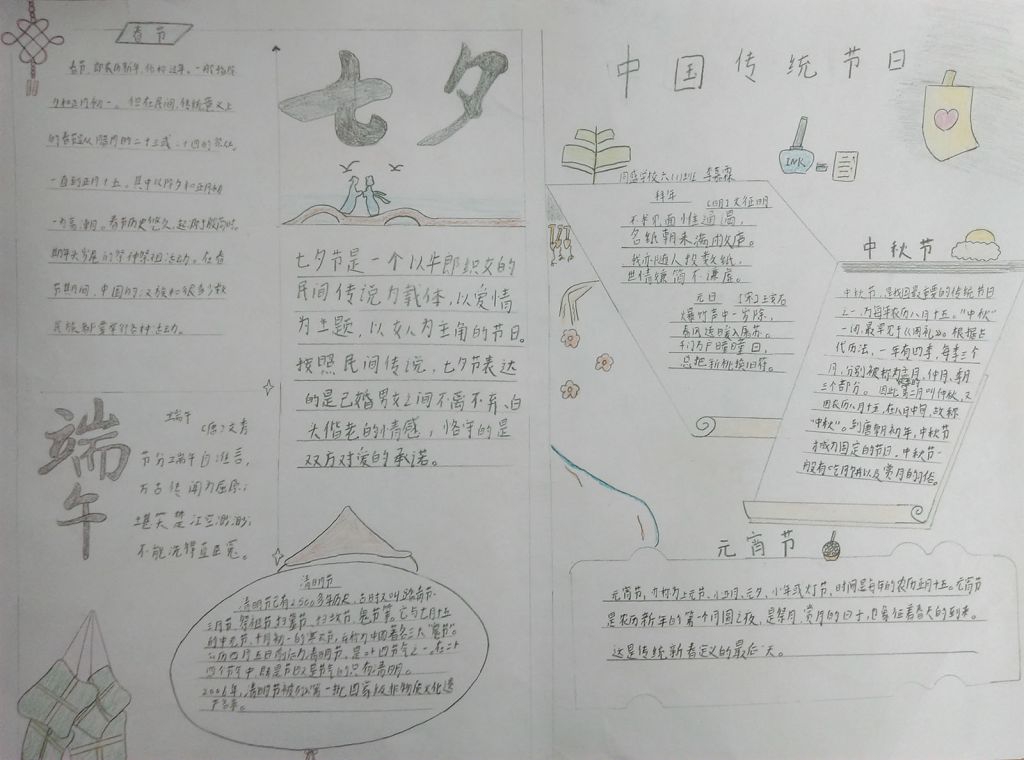 春节
春节，即农历新年，俗称过年。一般指除
夕和正月初一。但在民间，传统意义上
的春节从腊月的二十三或二十四的祭灶，
一直到正月十五，其中以除夕和正月初
一为高潮。春节历史悠久，起源于殷商时
期年头岁尾的祭神祭祖活动。在春
节期间，中国的汉族和很多少数
民族都要举行各种活动。
七夕
七夕节是一个以牛郎织女的
民间传说为载体，以爱情
为主题，以女人为主角的节日。
按照民间传说，七夕节表达
的是已婚男女之间不离不弃、白
头偕老的情感，恪守的是
双方对爱的承诺。
端午
端午
（唐）文秀
节分端午自谁言，
万古传闻为屈原；
堪笑楚江空渺渺，
不能洗得直臣冤。
清明节
清明节已有2500多年历史，古时又叫踏青节、
三月节、祭祖节、扫墓节、扫坟节、鬼节等。它与七月十五
的中元节、十月初一的寒衣节，合称为中国著名三大“鬼节”。
公历四月五日前后为清明节，是二十四节气之一。在二十
四个节气中，既是节日又是节气的只有清明。
2006年，清明节被列入第一批国家级非物质文化遗
产名录。
中国传统节日
INK
拜年
（明）文征明
不求见面惟通谒，
名纸朝来满敝庐。
我亦随人投数纸，
世情嫌简不嫌虚。
元日 （宋）王安石
爆竹声中一岁除，
春风送暖入屠苏。
千门万户曈曈日，
总把新桃换旧符。
中秋节
中秋节，是我国最重要的传统节日
之一，为每年农历八月十五。“中秋”
一词，最早见于《周礼》。根据古
代历法，一年有四季，每季三个
月，分别被称为孟月、仲月、季月
三个部分。因此秋季的第二月叫仲秋，又
因农历八月十五，在八月中旬，故称
“中秋”。到唐朝初年，中秋节
才成为固定的节日。中秋节一
般有吃月饼以及赏月的习俗。
元宵节
元宵节，亦称为上元节、小正月、元夕、小年或灯节，时间是每年的农历正月十五。元宵节
是农历新年的第一个月圆之夜，是祭月、赏月的日子，也象征着春天的到来。
这是传统新春定义的最后一天。